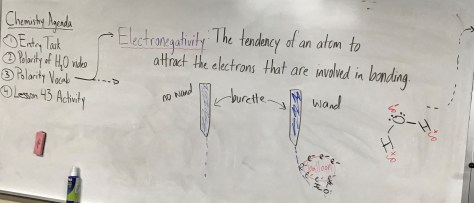 Chemistry Agenda
① Entry Task
② Polarity of H₂O video
③ Polarity Vocab
④ Lesson 43 Activity
Electronegativity: The tendency of an atom to
attract the electrons that are involved in bonding.
no wand
burette
wand
e- e- e-
e- e-
H₂O
δ-
O
H
δ+
H
δ+